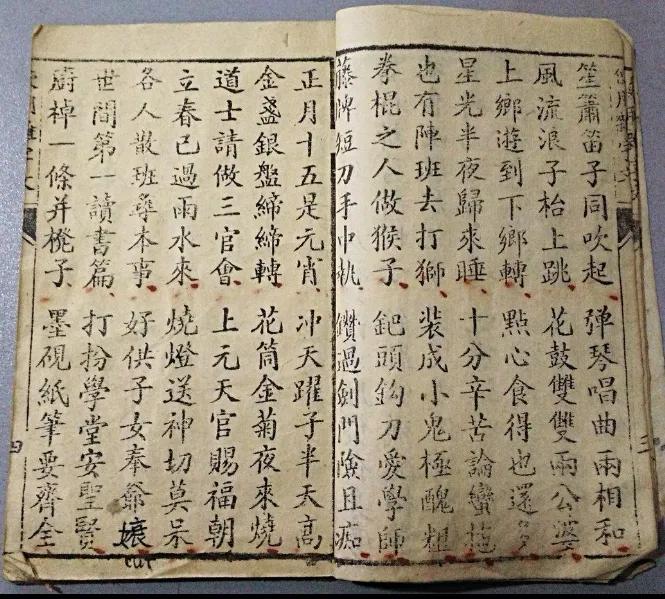 笙簫笛子同吹起 弹琴唱曲兩相和
風流浪子枱上跳 花鼓雙雙兩公婆
上鄉遊到下鄉轉 點心食得也還多
星光半夜歸來睡 十分辛苦論蠻
也有陣班去打獅 裝成小鬼極醜粗
拳棍之人做猴子 鈀頭鈎刀愛學師
藤牌短刀手中執 鑽過劍門險且痴
三
正月十五是元宵 冲天躍子半天高
金盞銀盤締締轉 花筒金菊夜來燒
道士請做三官會 上元天官賜福朝
立春已過雨水來 燒燈送神切莫呆
各人散班尋本事 好供子女奉爺娘
世間第一讀書篇 打扮學堂安聖賢
廚棹一條并櫈子 墨硯紙筆要齊全
四